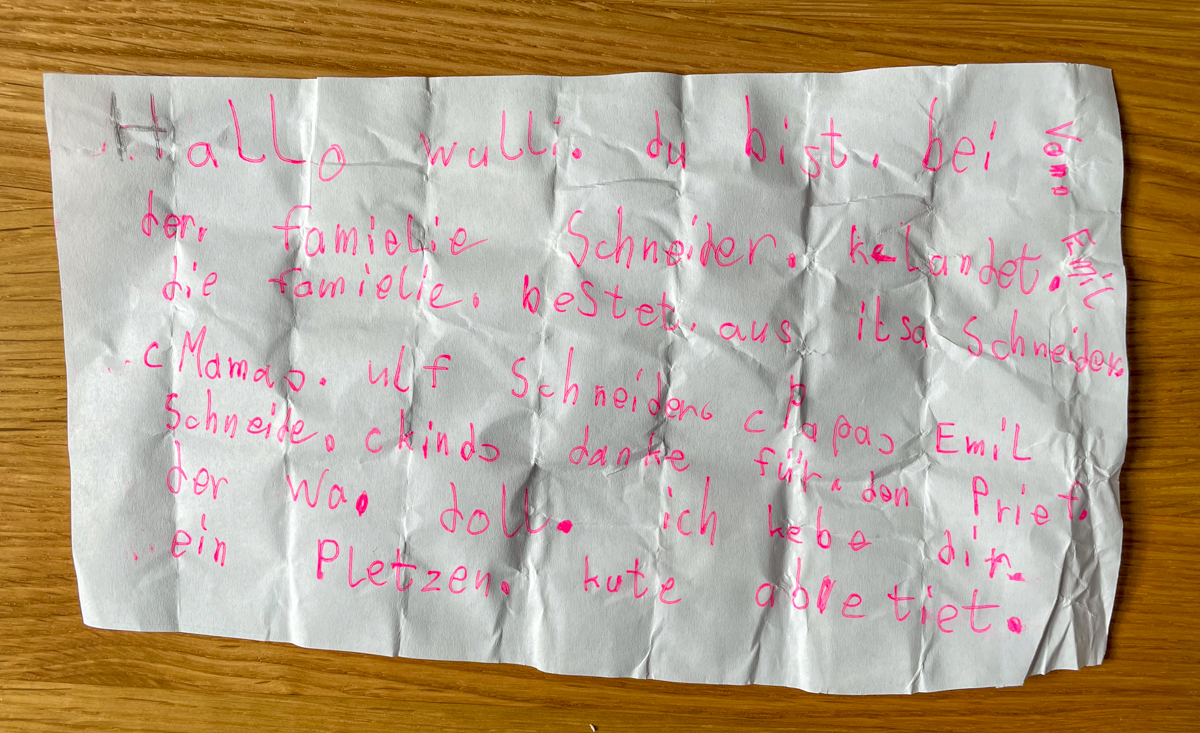 Hallo wulli. du bist. bei
der. famielie Schneider. kelandet.
die famielie. bestet. aus itsa Schneider.
cMamaɔ. ulf Schneider. cPapaɔ Emil
Schneide. ckindɔ danke für. den Prief.
der wa. doll. ich kebe dir.
ein Pletzen. kute abletiet.
Vomo Emil